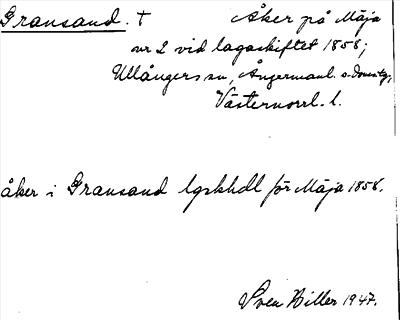 Gransand. † Åker på Mäja
nr 2 vid lagaskiftet 1858;
Ullångers sn, Ångermanl. s. domstg,
Västernorrl. l.
åker i Gransand lgskhdl för Mäja 1858.
Sven Hiller 1947.